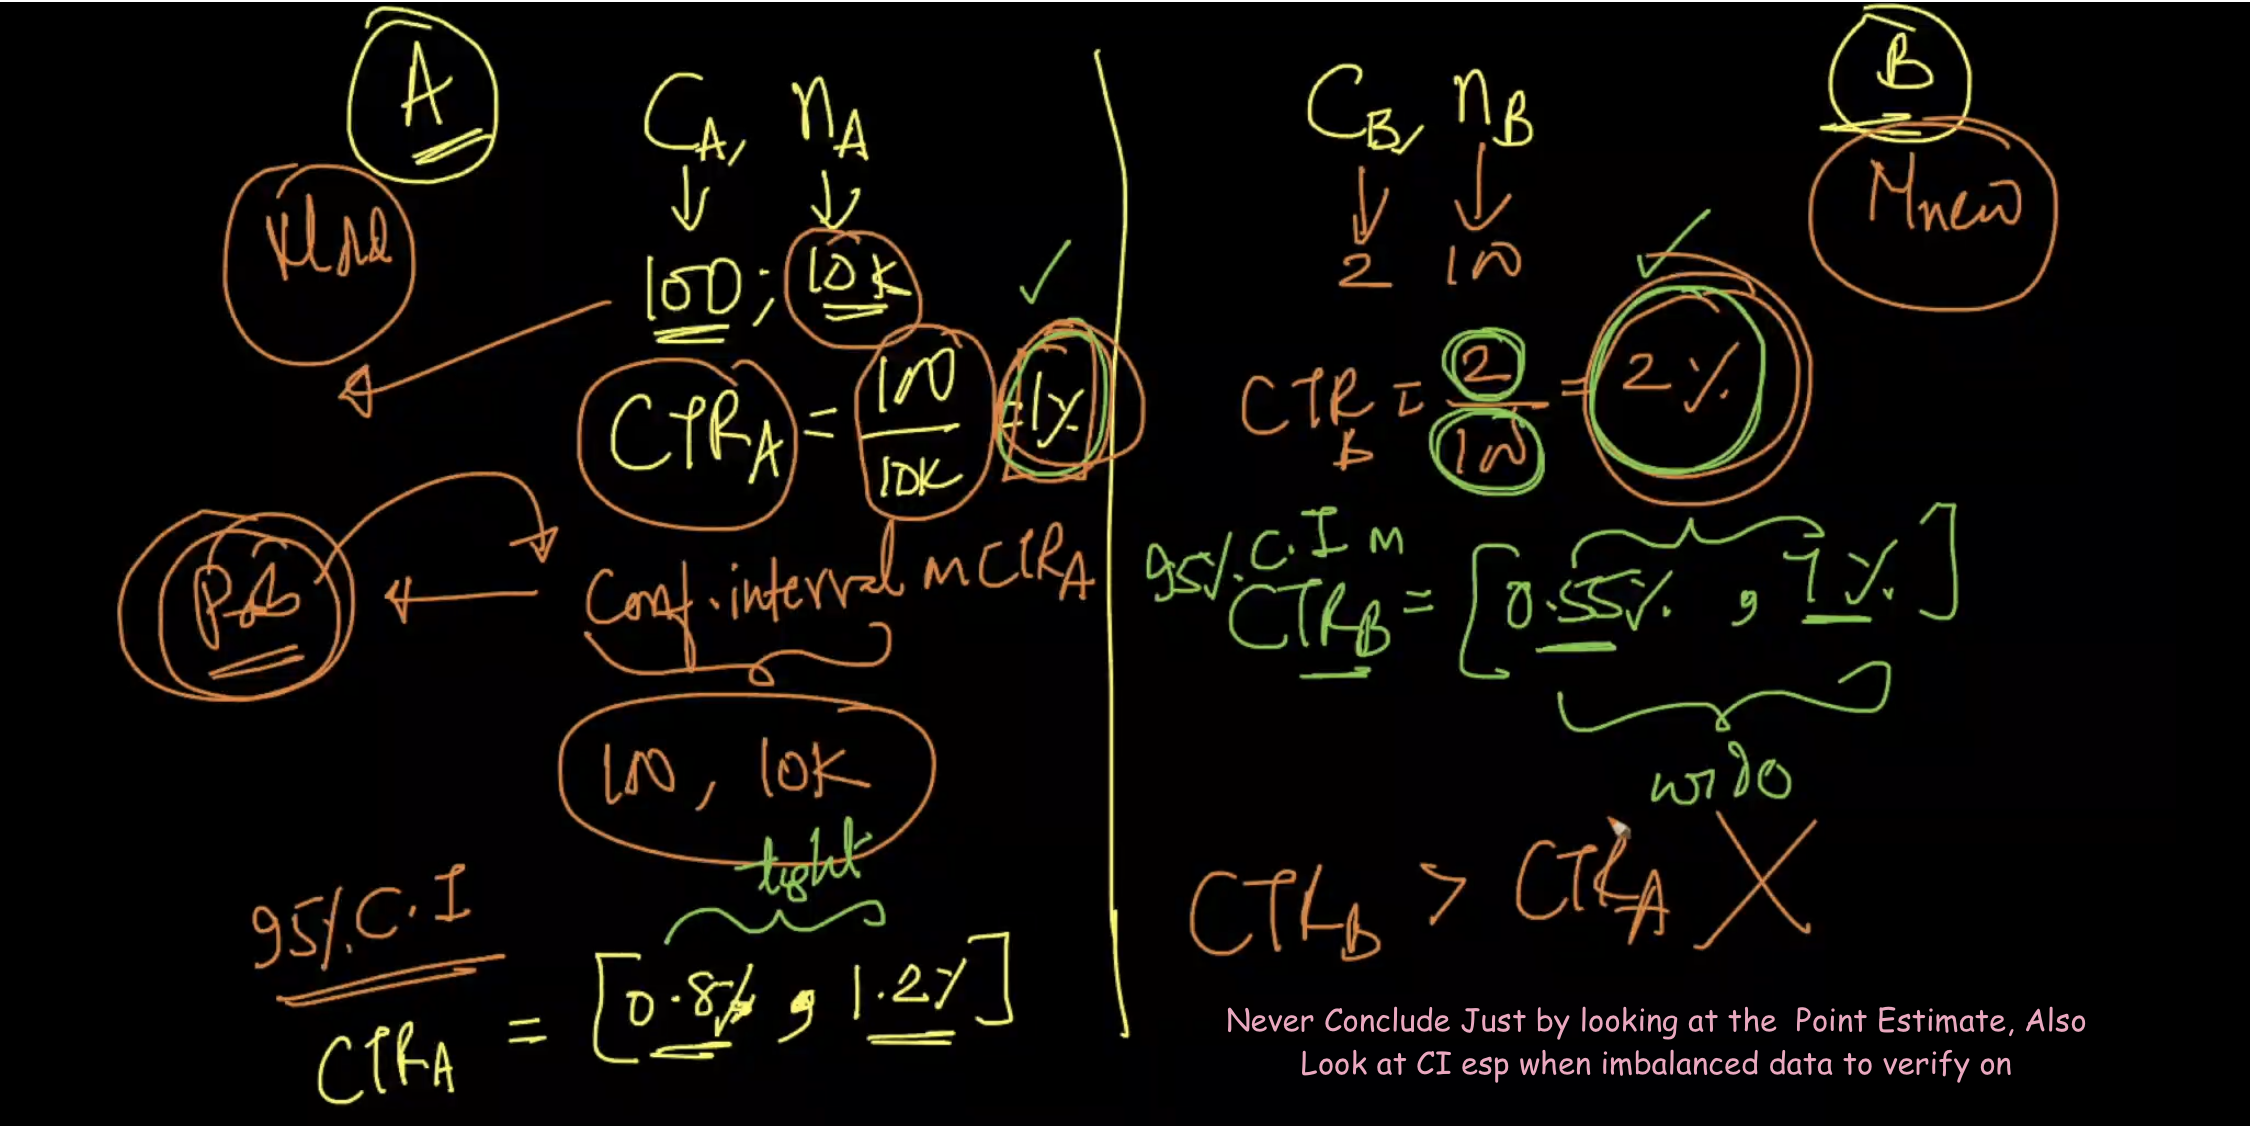 A
C_A, n_A
100 ; 10K
CTR_A = 100 / 10K = 1%
Conf. interval on CTR_A
100, 10K
tight
95% C.I
CTR_A = [0.8%, 1.2%]
B
M new
C_B, n_B
2 100
CTR_B = 2 / 100 = 2%
95% C.I on
CTR_B = [0.55%, 7%]
wide
CTR_B > CTR_A X
Never Conclude Just by looking at the Point Estimate, Also
Look at CI esp when imbalanced data to verify on